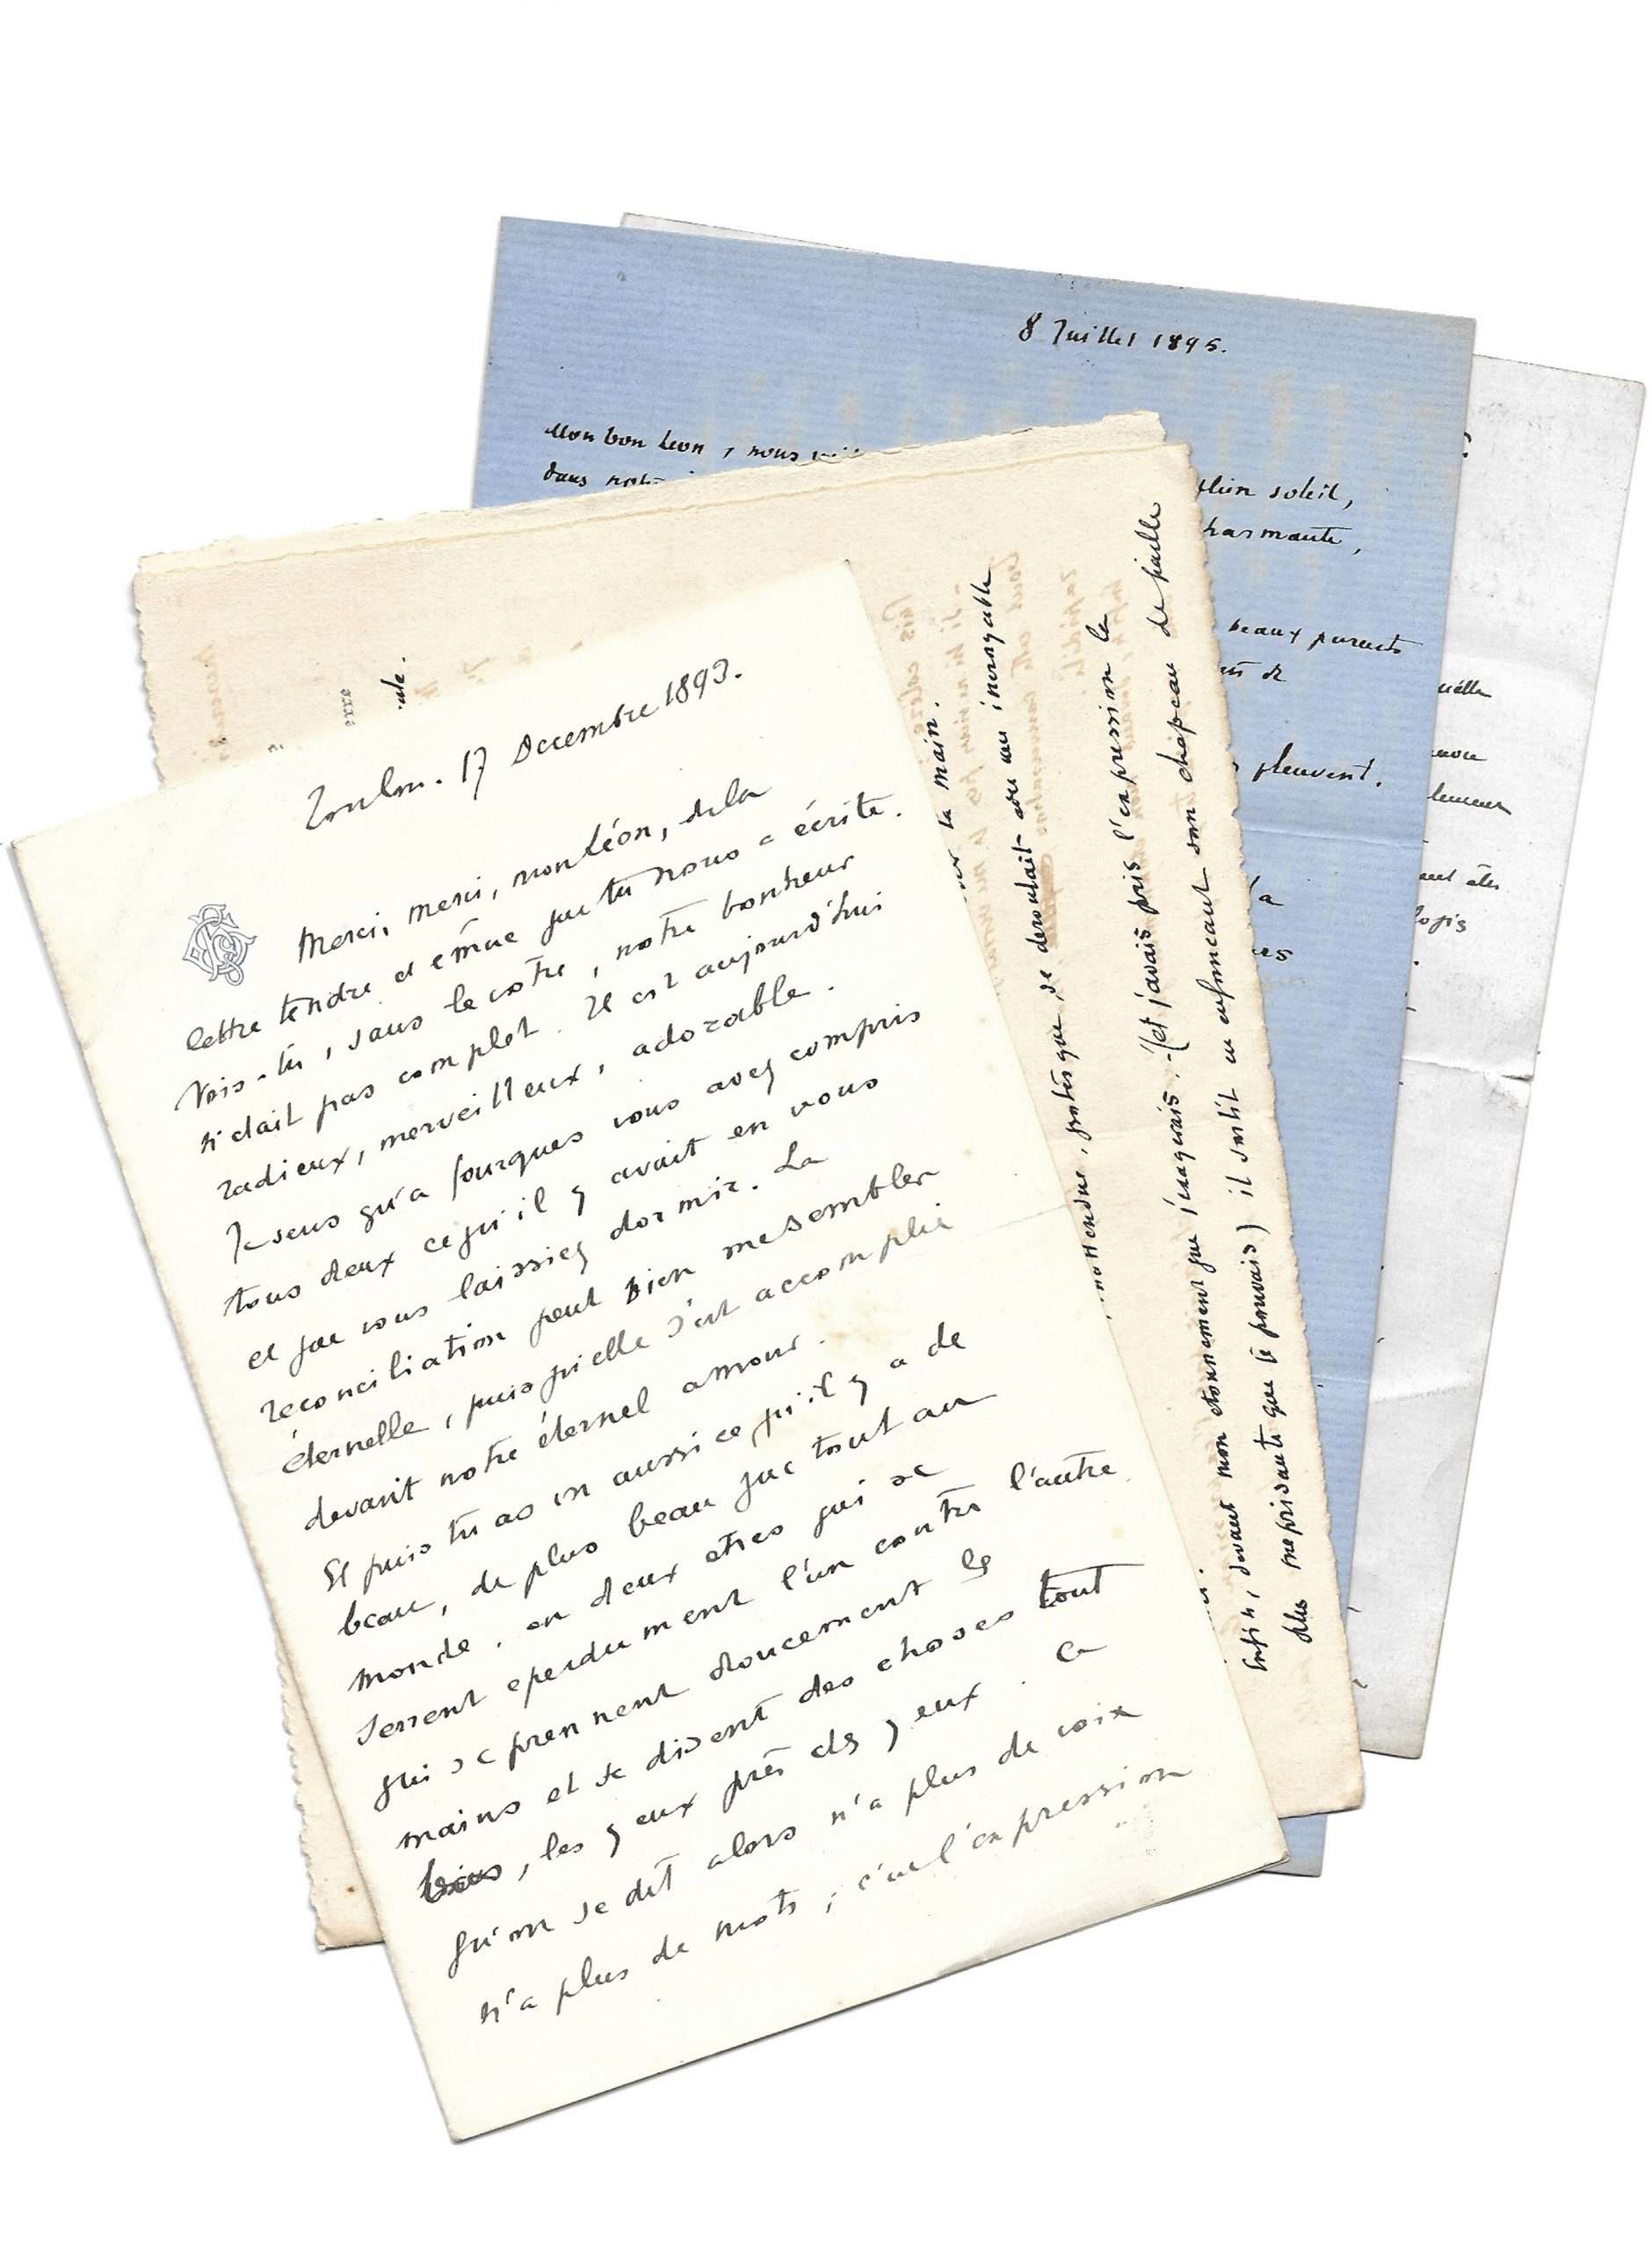 Toulon. 17 Decembre 1893.
Merci, merci, mon Léon, de la
lettre tendre et émue que tu nous a écrite.
Vois-tu, sans le votre, notre bonheur
n'etait pas complet. Il est aujourd'hui
radieux, merveilleux, adorable.
Je sens qu'a fourques vous avez compris
tous deux ce qu'il y avait en vous
et que vous laissiez dormir. La
reconciliation peut bien me sembler
éternelle, puisqu'elle s'est accomplie
devant notre éternel amour.
Et puis tu as vu aussi ce qu'il y a de
beau, de plus beau que tout au
monde. en deux etres qui se
serrent eperdument l'un contre l'autre
qui se prennent doucement les
mains et se disent des choses tout
bas, les yeux près des yeux. Ce
qu'on se dit alors n'a plus de voix
n'a plus de mots; c'est l'expression
la main.
se deroulait avec une incroyable
inattendue, grotesque
(et j'avais pris l'expression la
Enfin, devant mon etonnement que j'exagerais.
plus meprisante que je pouvais) il sortit en enfonçant son chapeau de paille
8 Juillet 1895.
Mon bon Leon, nous
dans
plein soleil,
charmante,
beaux parents
de
pleuvent.
a
logis